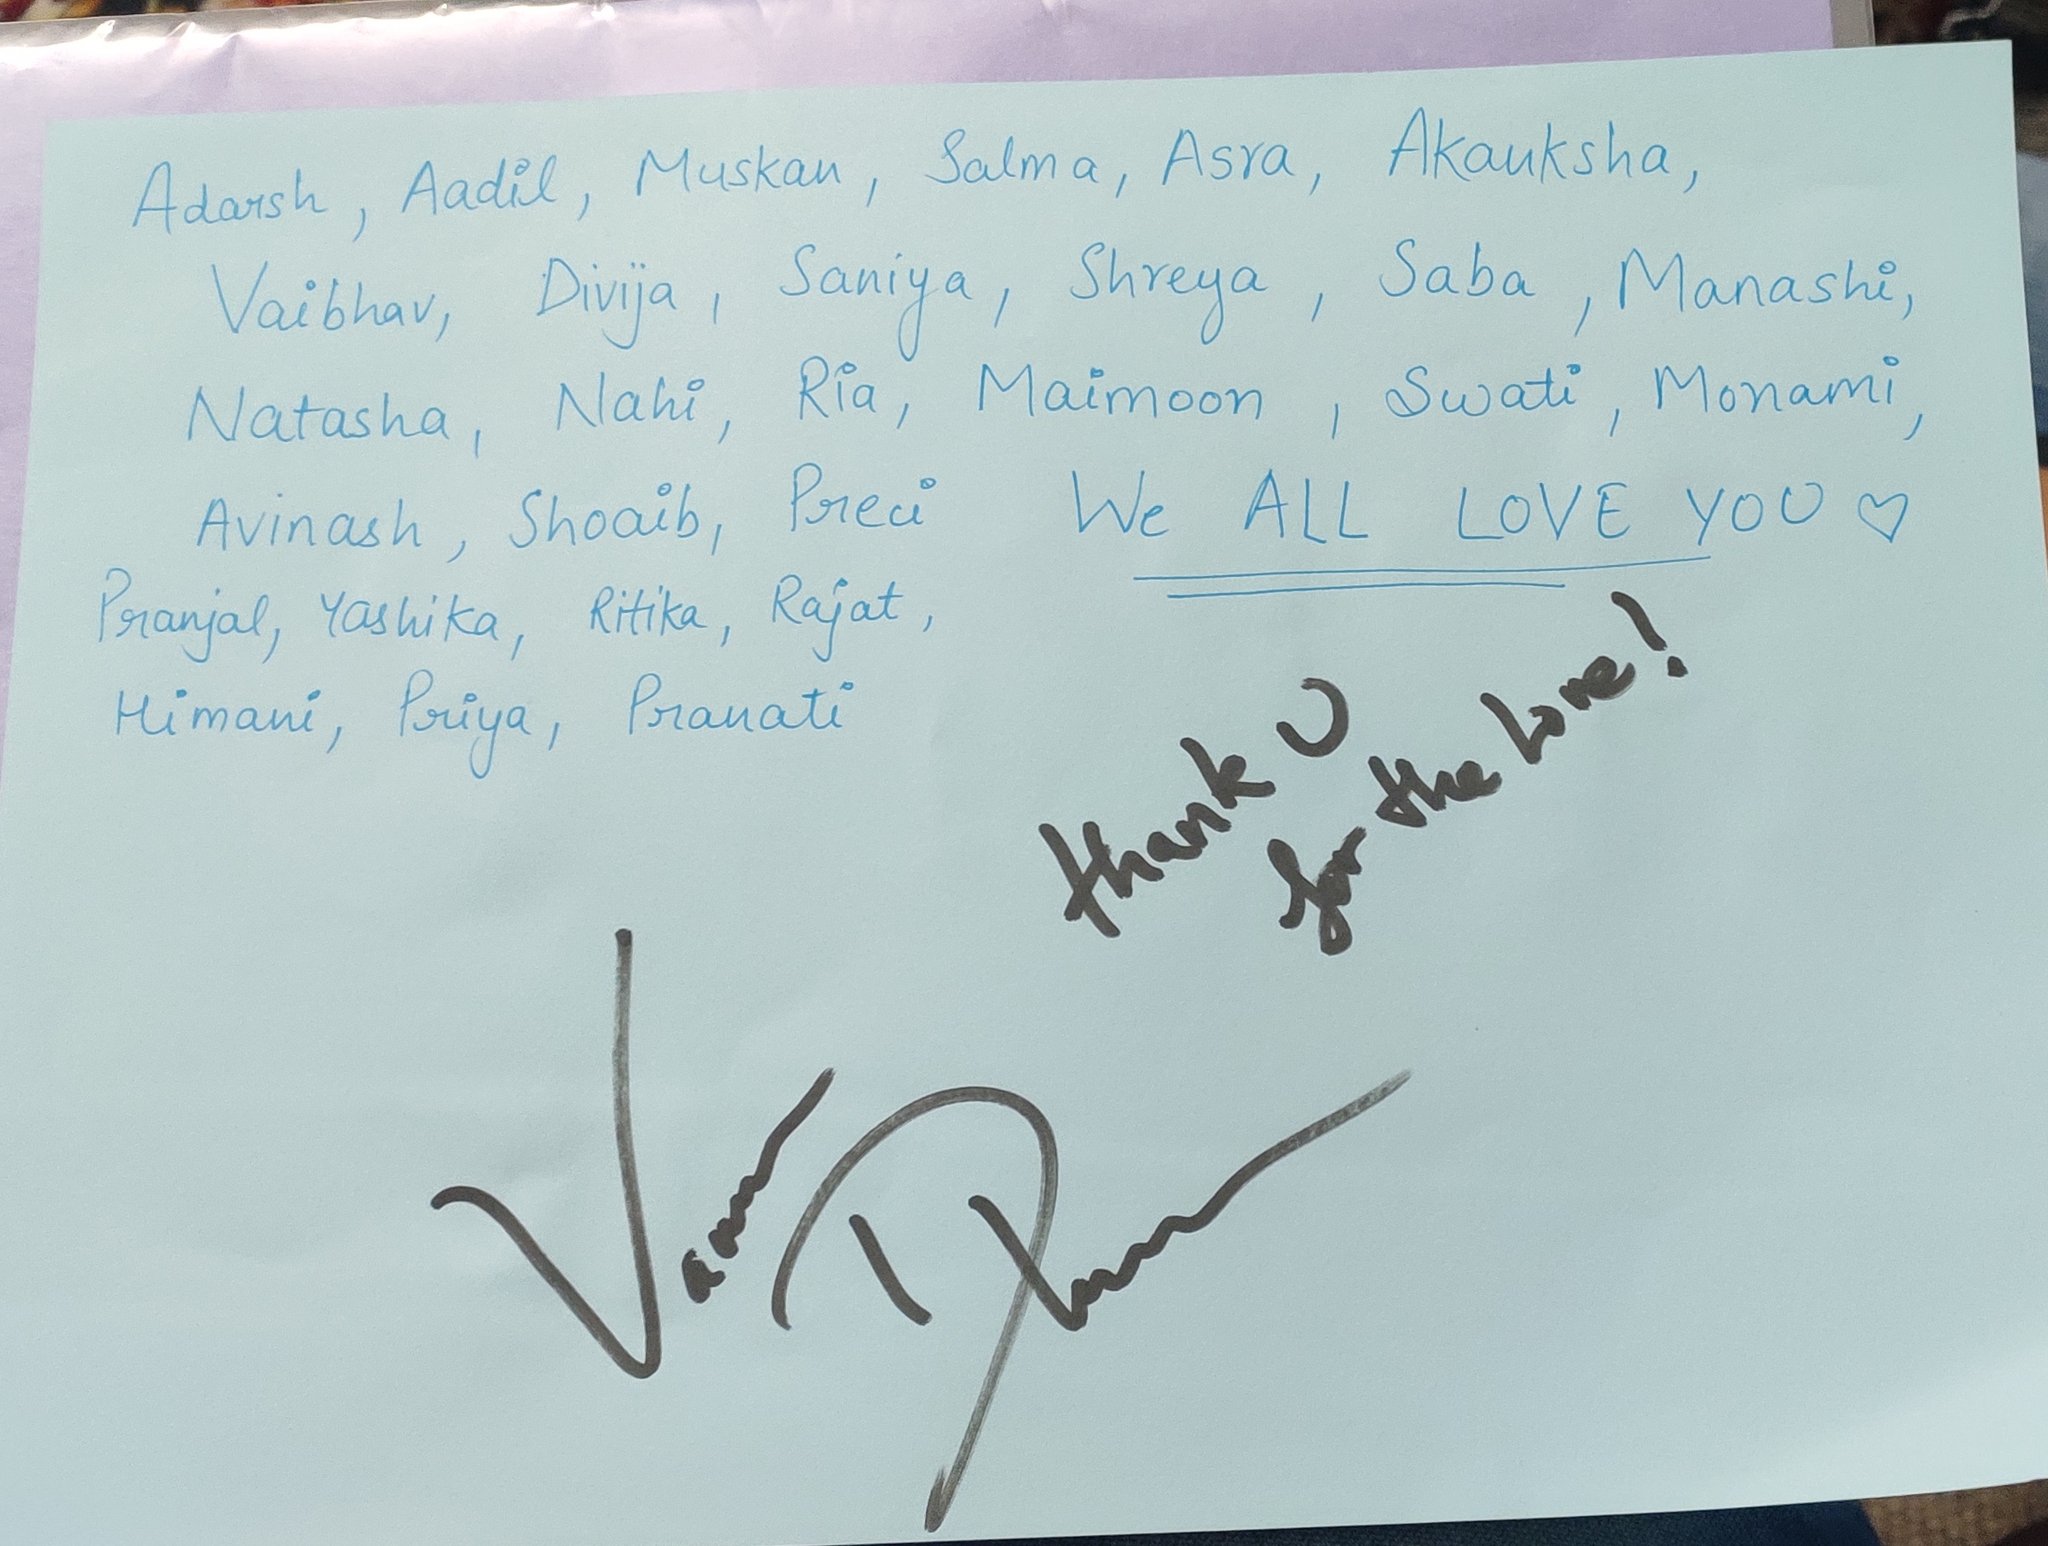 Adarsh, Aadil, Muskan, Salma, Asra, Akauksha,
Vaibhav, Divija, Saniya, Shreya, Saba, Manashi,
Natasha, Nahi, Ria, Maimoon, Swati, Monami,
Avinash, Shoaib, Preci We ALL LOVE YOU ♡
Pranjal, Yashika, Ritika, Rajat,
Himani, Priya, Pranati
Thank U
for the Love!
Varun Dhawan